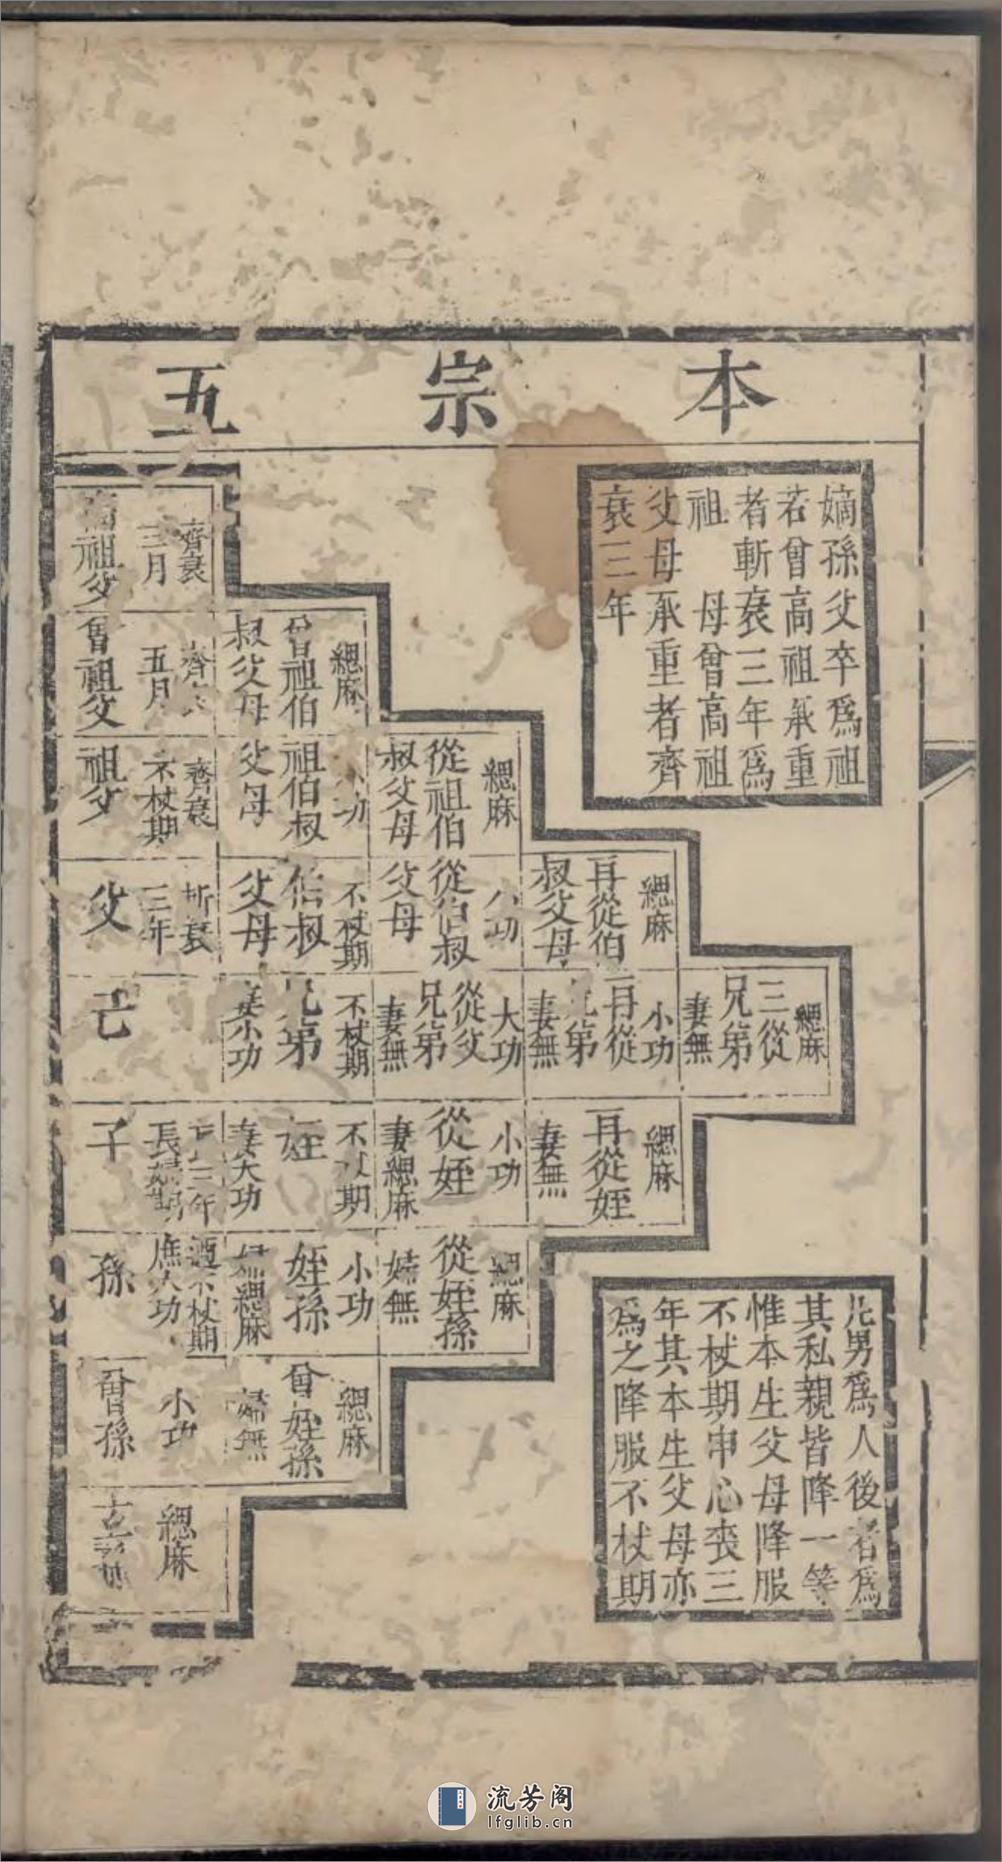 本宗五
嫡孫父卒爲祖
若曾高祖承重
者斬衰三年爲
祖 母曾高祖
父母承重者齊
衰三年
緦麻
曾祖伯
叔父母
齊衰
三月
高祖父
齊
五月
曾祖父
緦麻
從祖伯
叔父母
功
祖伯叔
父母
齊衰
不杖期
祖父
緦麻
再從伯
叔父母
小功
從伯叔
父母
不杖期
伯叔
父母
斬衰
三年
父
緦麻
三從
兄弟
妻無
小功
再從
兄弟
妻無
大功
從父
兄弟
妻無
不杖期
兄弟
妻小功
己
緦麻
再從姪
妻無
小功
從姪
妻緦麻
不杖期
姪
妻大功
三年
長婦期
子
緦麻
從姪孫
婦無
小功
姪孫
婦緦麻
適不杖期
庶大功
孫
緦麻
曾姪孫
婦無
小功
曾孫
緦麻
玄孫
凡男爲人後者爲
其私親皆降一等
惟本生父母降服
不杖期申心喪三
年其本生父母亦
爲之降服不杖期
流芳阁
lfglib.cn